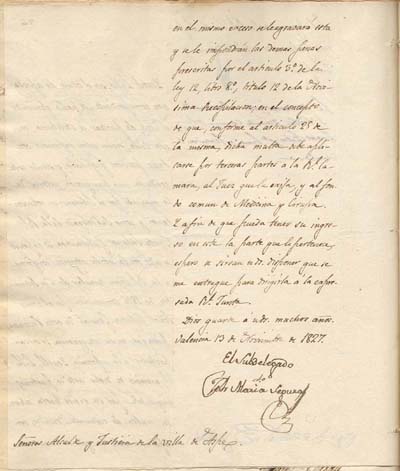 en el mismo exceso se le agravará esta
y se le impondrán las demas penas
prescritas por el articulo 3º. de la
ley 12, libro 8º, titulo 12 de la Novi-
sima Recopilacion; en el concepto
de que, conforme al articulo 2º de
la misma, dicha multa debe apli-
carse por terceras partes á la Rl. Ca-
mara, al Juez que la exija, y al fon-
do comun de Medicina y Cirugia.
Y á fin de que pueda tener su ingre-
so en este la parte que le pertenece,
espero se sirvan vds. disponer que se
me entregue para dirigirla á la expre-
sada Rl. Junta.
Dios guarde á vds. muchos años.
Valencia 13 de Noviembre de 1827.
El Subdelegado
Maria Segura
Señores Alcalde y Justicia de la villa de Aspe